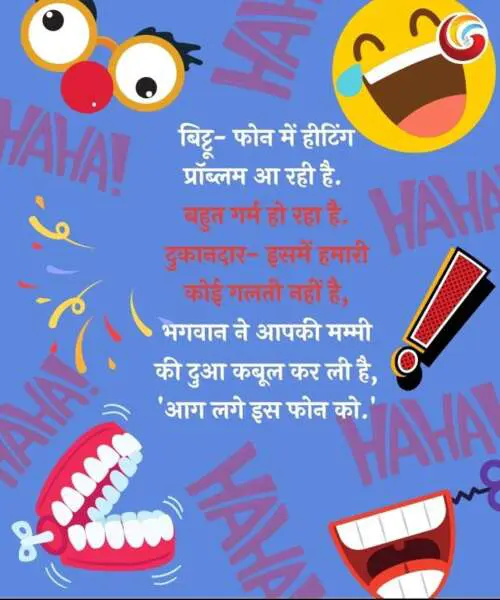 HAHA!
बिट्टू- फोन में हीटिंग
प्रॉब्लम आ रही है.
बहुत गर्म हो रहा है.
दुकानदार- इसमें हमारी
कोई गलती नहीं है,
भगवान ने आपकी मम्मी
की दुआ कबूल कर ली है,
'आग लगे इस फोन को.'
HAHA
HAHA!
HAHA
HAHA
HAHA